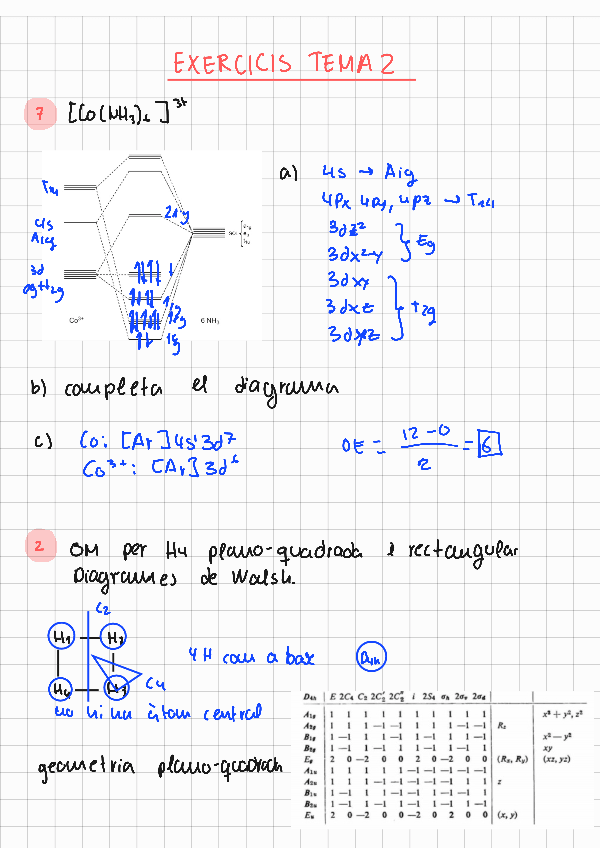 EXERCICIS TEMA 2
7 [Co(NH3)6]3+
a) 4s → A1g
4px 4py, 4pz → T1u
3dz²
3dx²-y } Eg
3dxy
3dxz } t2g
3dyz
T1u
4s
A1g
3d
2a1g
1g
Co³⁺
6 NH₃
b) completa el diagrama
c) Co: [Ar] 4s¹ 3d⁷
Co³⁺: [Ar] 3d⁶
OE = 12-0 / 2 = 6
2 OM per H4 plano-quadrada i rectangular
Diagrames de Walsh.
C2
H1 H2
H4 H3
C4
4H com a base D4h
no hi ha àtom central
geometria plano-quadrada
D4h E 2C4 C2 2C2' 2C2'' i 2S4 σh 2σv 2σd
A1g 1 1 1 1 1 1 1 1 1 1 x² + y², z²
A2g 1 1 1 -1 -1 1 1 1 -1 -1 Rz
B1g 1 -1 1 1 -1 1 -1 1 1 -1 x² - y²
B2g 1 -1 1 -1 1 1 -1 1 -1 1 xy
Eg 2 0 -2 0 0 2 0 -2 0 0 (Rx, Ry) (xz, yz)
A1u 1 1 1 1 1 -1 -1 -1 -1 -1
A2u 1 1 1 -1 -1 -1 -1 -1 1 1 z
B1u 1 -1 1 1 -1 -1 1 -1 -1 1
B2u 1 -1 1 -1 1 -1 1 -1 1 -1
Eu 2 0 -2 0 0 -2 0 2 0 0 (x, y)